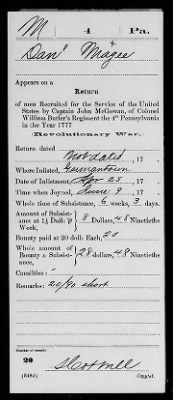 M 4 Pa.
Dan'l Magee
Appears on a
Return
of men Recruited for the Service of the United
States by Captain John McGowan, of Colonel
William Butler's Regiment the 4th Pennsylvania
in the Year 1777
Revolutionary War.
Return dated
Not dated, 17
Where Inlisted, Germantown
Date of Inlistment, Apr 25, 17
Time when Joyned, June 9, 17
Whole time of Subsistance, 6 weeks, 3 days.
Amount of Subsist-
ance at 1⅓ Doll: ℔ 8 Dollars, 48 Ninetieths
Week,
Bounty paid at 20 doll: Each, 20
Whole amount of
Bounty & Subsist- 28 dollars, 48 Ninetieths
ance.
Casualties:
Remarks: 20/90 short
Number of record:
20
(648d) Copyist.